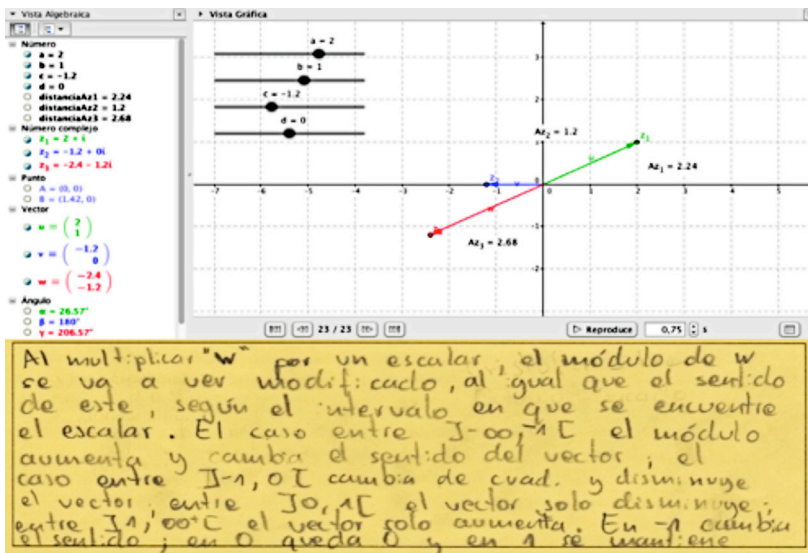 Vista Algebraica
Vista Gráfica
Número
a = 2
b = 1
c = -1.2
d = 0
distanciaAz1 = 2.24
distanciaAz2 = 1.2
distanciaAz3 = 2.68
Número complejo
z₁ = 2 + i
z₂ = -1.2 + 0i
z₃ = -2.4 - 1.2i
Punto
A = (0, 0)
B = (1.42, 0)
Vector
u = ( 2
1 )
v = ( -1.2
0 )
w = ( -2.4
-1.2 )
Ángulo
α = 26.57°
β = 180°
γ = 206.57°
a = 2
b = 1
c = -1.2
d = 0
3
2
Az₂ = 1.2
z₁
u
Az₁ = 2.24
z₂
v
0
-7 -6 -5 -4 -3 -2 -1 0 1 2 3 4 5
w
Az₃ = 2.68
-1
-2
23 / 23
Reproduce
0,75 s
Al multiplicar "w" por un escalar, el módulo de w
se va a ver modificado, al igual que el sentido
de este, según el intervalo en que se encuentre
el escalar. El caso entre ]-∞,-1[ el módulo
aumenta y cambia el sentido del vector; el
caso entre ]-1,0[ cambia de cuad. y disminuye
el vector; entre ]0,1[ el vector solo disminuye;
entre ]1,∞+[ el vector solo aumenta. En -1 cambia
el sentido; en 0 queda 0 y en 1 se mantiene